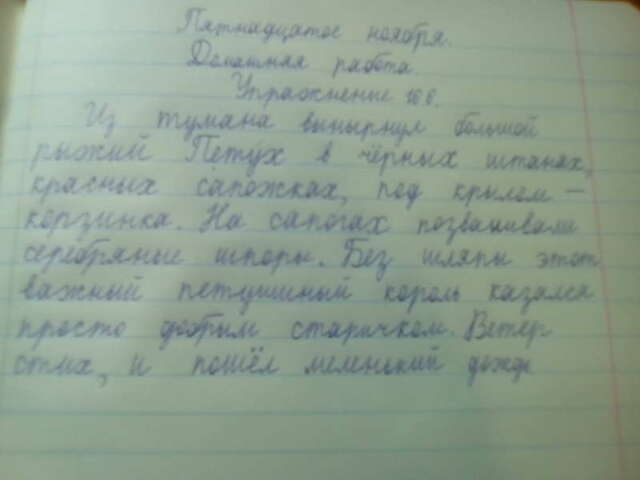 Пятнадцатое ноября.
Домашняя работа.
Упражнение 166.
Из тумана вынырнул большой
рыжий Петух в чёрных штанах,
красных сапожках, под крылом –
корзинка. На сапогах позванивали
серебряные шпоры. Без шляпы этот
важный петушиный король казался
просто добрым старичком. Ветер
стих, и пошёл меленький дождь